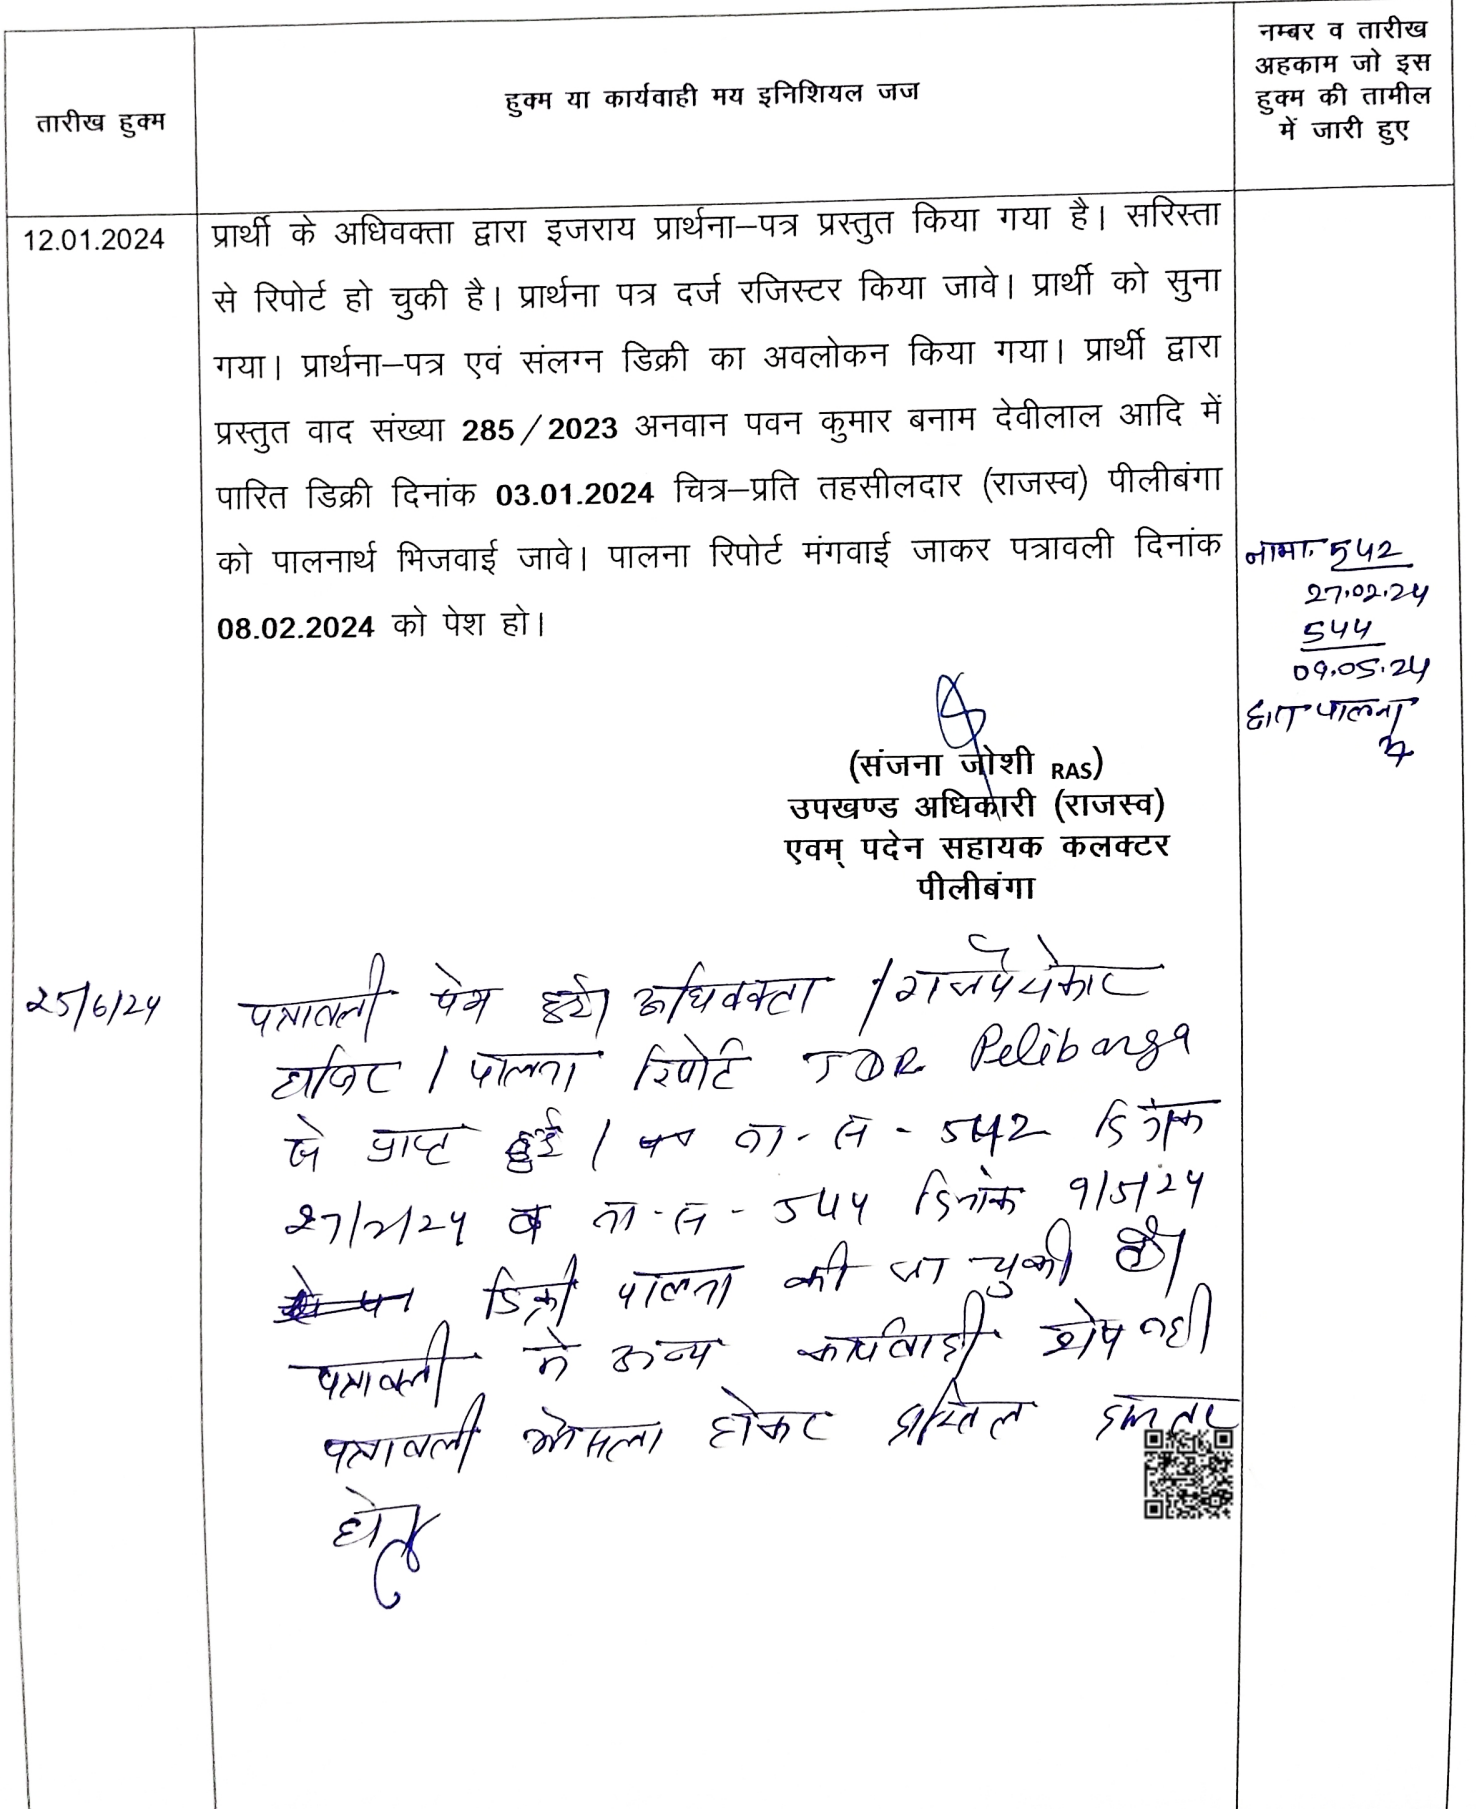 तारीख हुक्म
हुक्म या कार्यवाही मय इनिशियल जज
नम्बर व तारीख
अहकाम जो इस
हुक्म की तामील
में जारी हुए
12.01.2024
प्रार्थी के अधिवक्ता द्वारा इजराय प्रार्थना–पत्र प्रस्तुत किया गया है। सरिस्ता
से रिपोर्ट हो चुकी है। प्रार्थना पत्र दर्ज रजिस्टर किया जावे। प्रार्थी को सुना
गया। प्रार्थना–पत्र एवं संलग्न डिक्री का अवलोकन किया गया। प्रार्थी द्वारा
प्रस्तुत वाद संख्या 285/2023 अनवान पवन कुमार बनाम देवीलाल आदि में
पारित डिक्री दिनांक 03.01.2024 चित्र–प्रति तहसीलदार (राजस्व) पीलीबंगा
को पालनार्थ भिजवाई जावे। पालना रिपोर्ट मंगवाई जाकर पत्रावली दिनांक
08.02.2024 को पेश हो।
नामा. 542
27.02.24
544
09.05.24
पालना
(संजना जोशी RAS)
उपखण्ड अधिकारी (राजस्व)
एवम् पदेन सहायक कलक्टर
पीलीबंगा
25/6/24
पत्रावली पेश हुई। अधिवक्ता / राजपैरोकार
हाजिर। पालना रिपोर्ट TDR Pelibanga
से प्राप्त हुई। ना-सं- 542 दिनांक
27/2/24 व ना-सं- 544 दिनांक 9/5/24
डिक्री पालना की जा चुकी है।
पत्रावली मे अन्य कार्यवाही शेष नही
पत्रावली फैसला होकर दाखिल दफ्तर